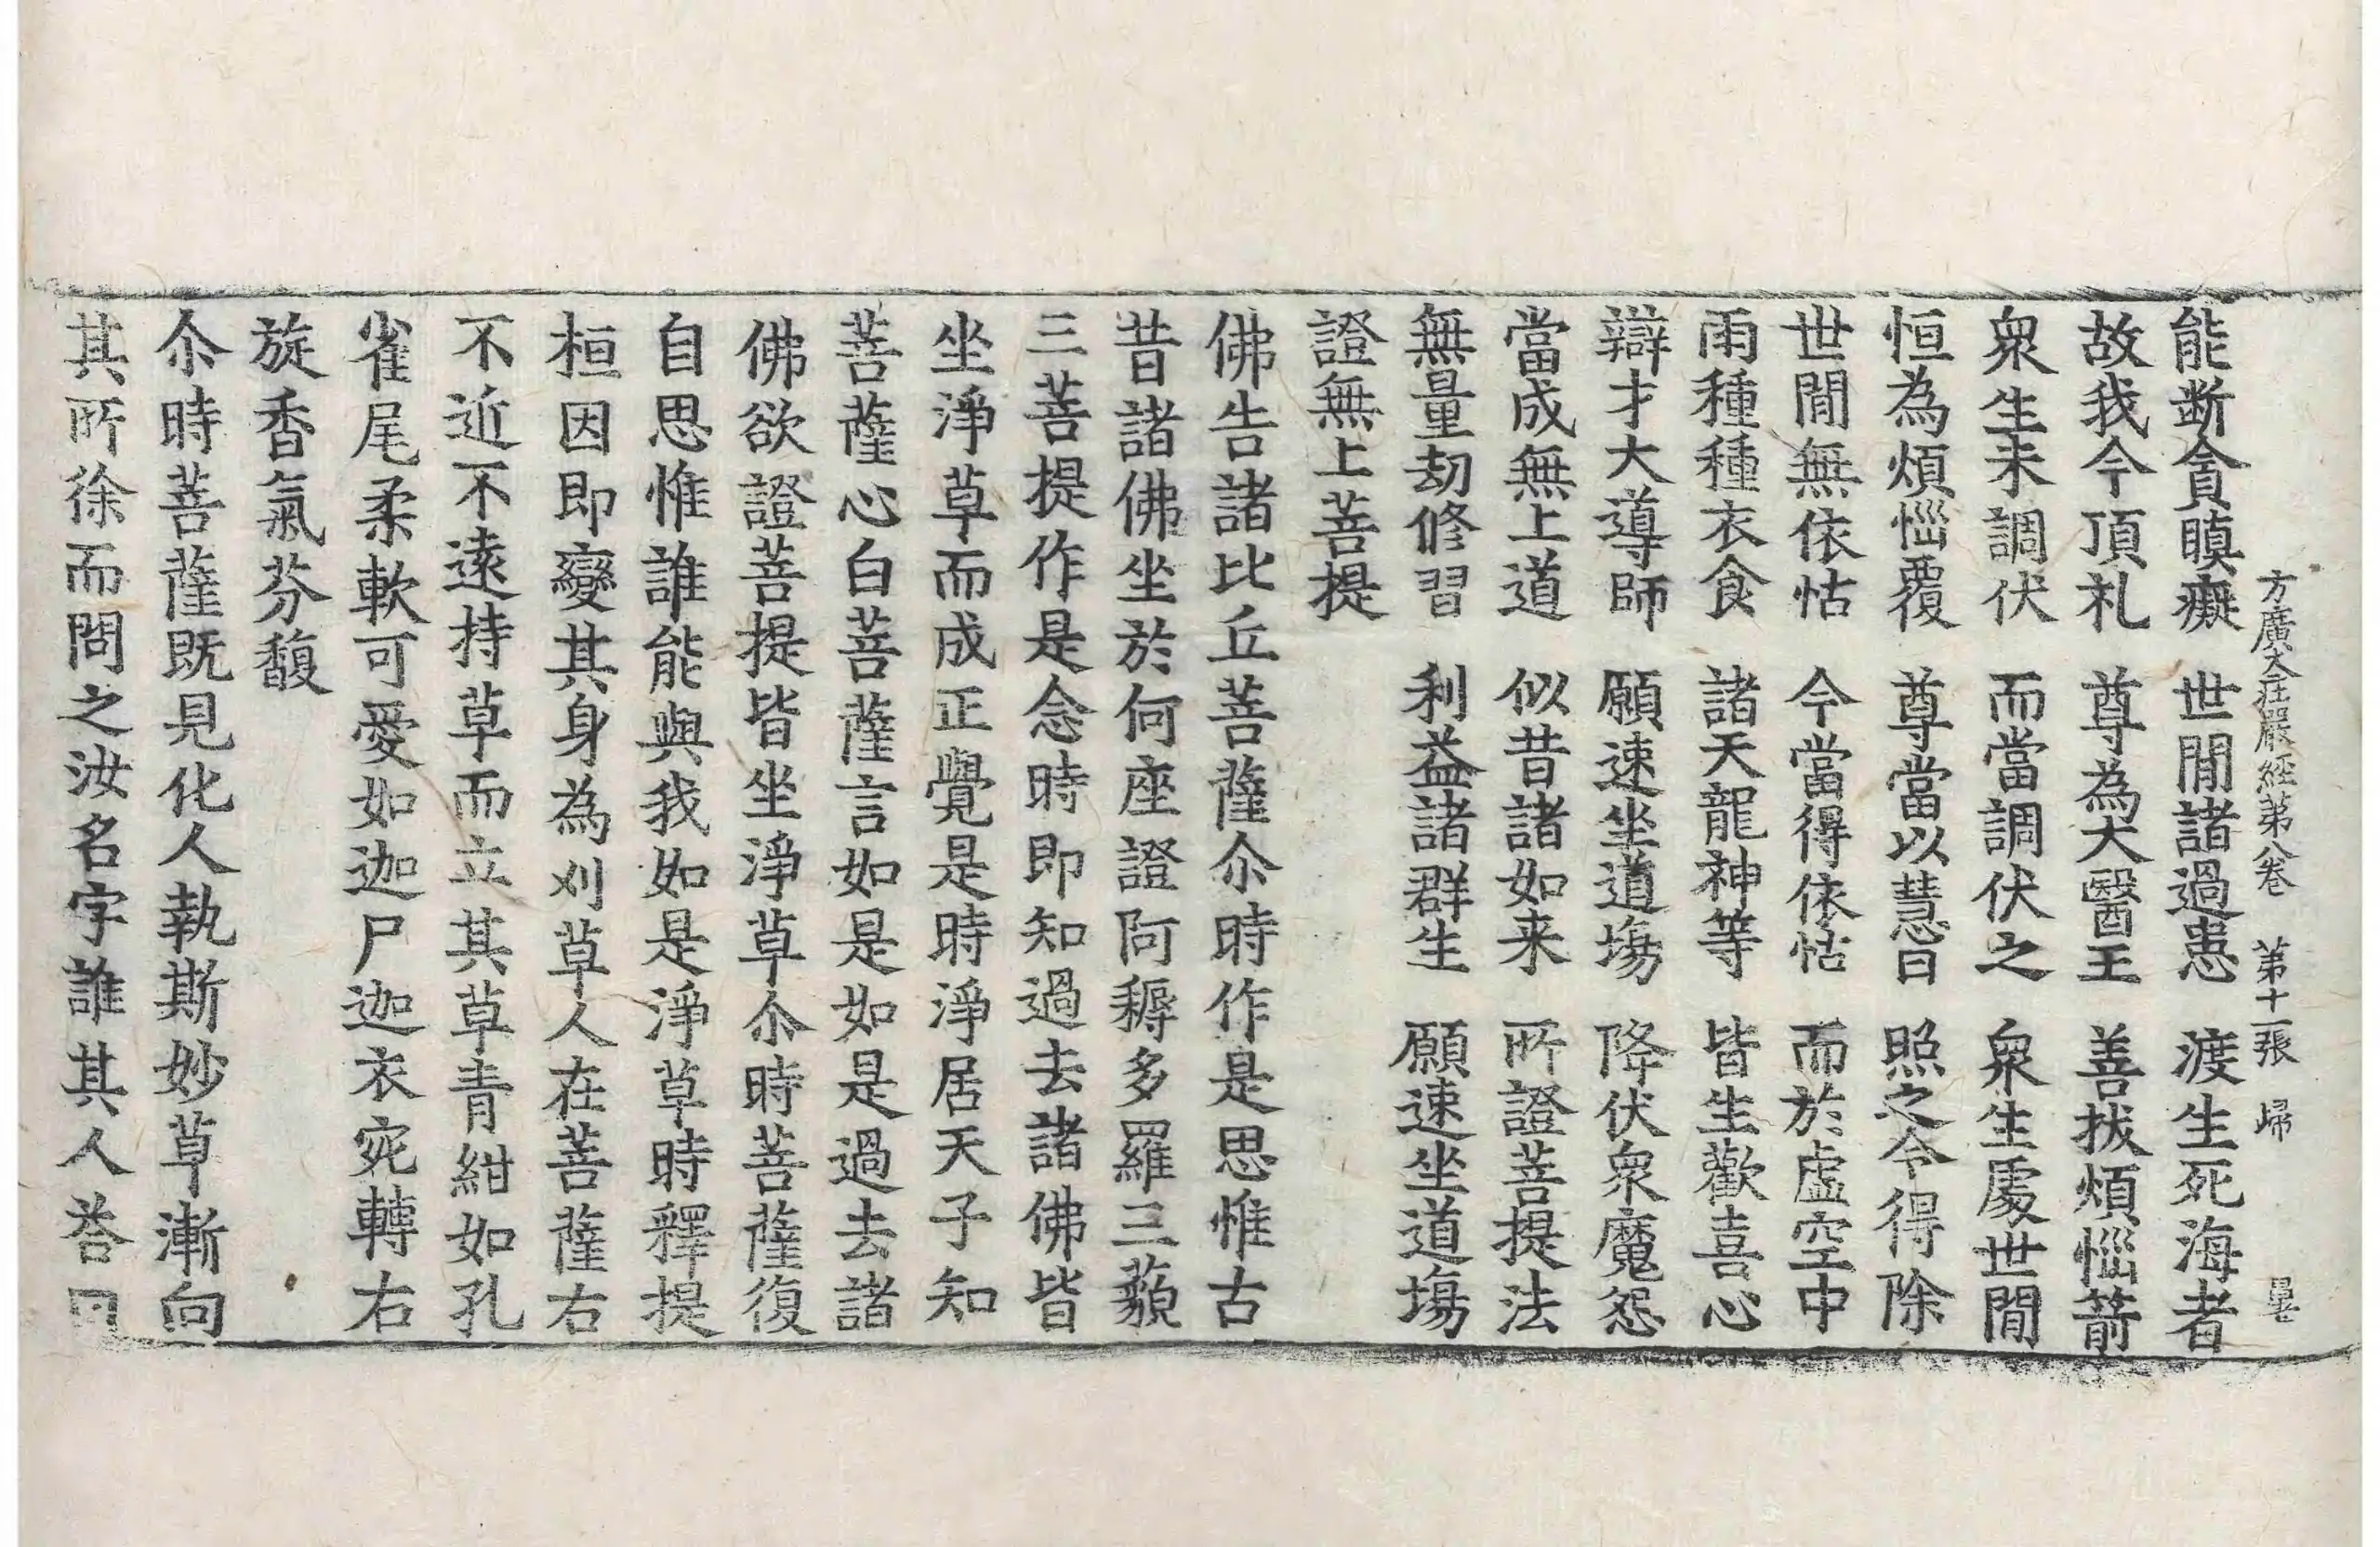 方廣大莊嚴經第八卷 第十一張 歸
能断貪瞋癡 世間諸過患 渡生死海者
故我今頂礼 尊為大醫王 善拔煩惱箭
衆生未調伏 而當調伏之 衆生處世間
恒為煩惱覆 尊當以慧日 照之令得除
世間無依怙 今當得依怙 而於虛空中
雨種種衣食 諸天龍神等 皆生歡喜心
辯才大導師 願速坐道場 降伏衆魔怨
當成無上道 似昔諸如来 所證菩提法
無量劫修習 利益諸群生 願速坐道場
證無上菩提
佛告諸比丘菩薩尒時作是思惟古
昔諸佛坐於何座證阿耨多羅三藐
三菩提作是念時即知過去諸佛皆
坐淨草而成正覺是時淨居天子知
菩薩心白菩薩言如是如是過去諸
佛欲證菩提皆坐淨草尒時菩薩復
自思惟誰能與我如是淨草時釋提
桓因即變其身為刈草人在菩薩右
不近不遠持草而立其草青紺如孔
雀尾柔軟可愛如迦尸迦衣宛轉右
旋香氣芬馥
尒時菩薩既見化人執斯妙草漸向
其所徐而問之汝名字誰其人荅曰